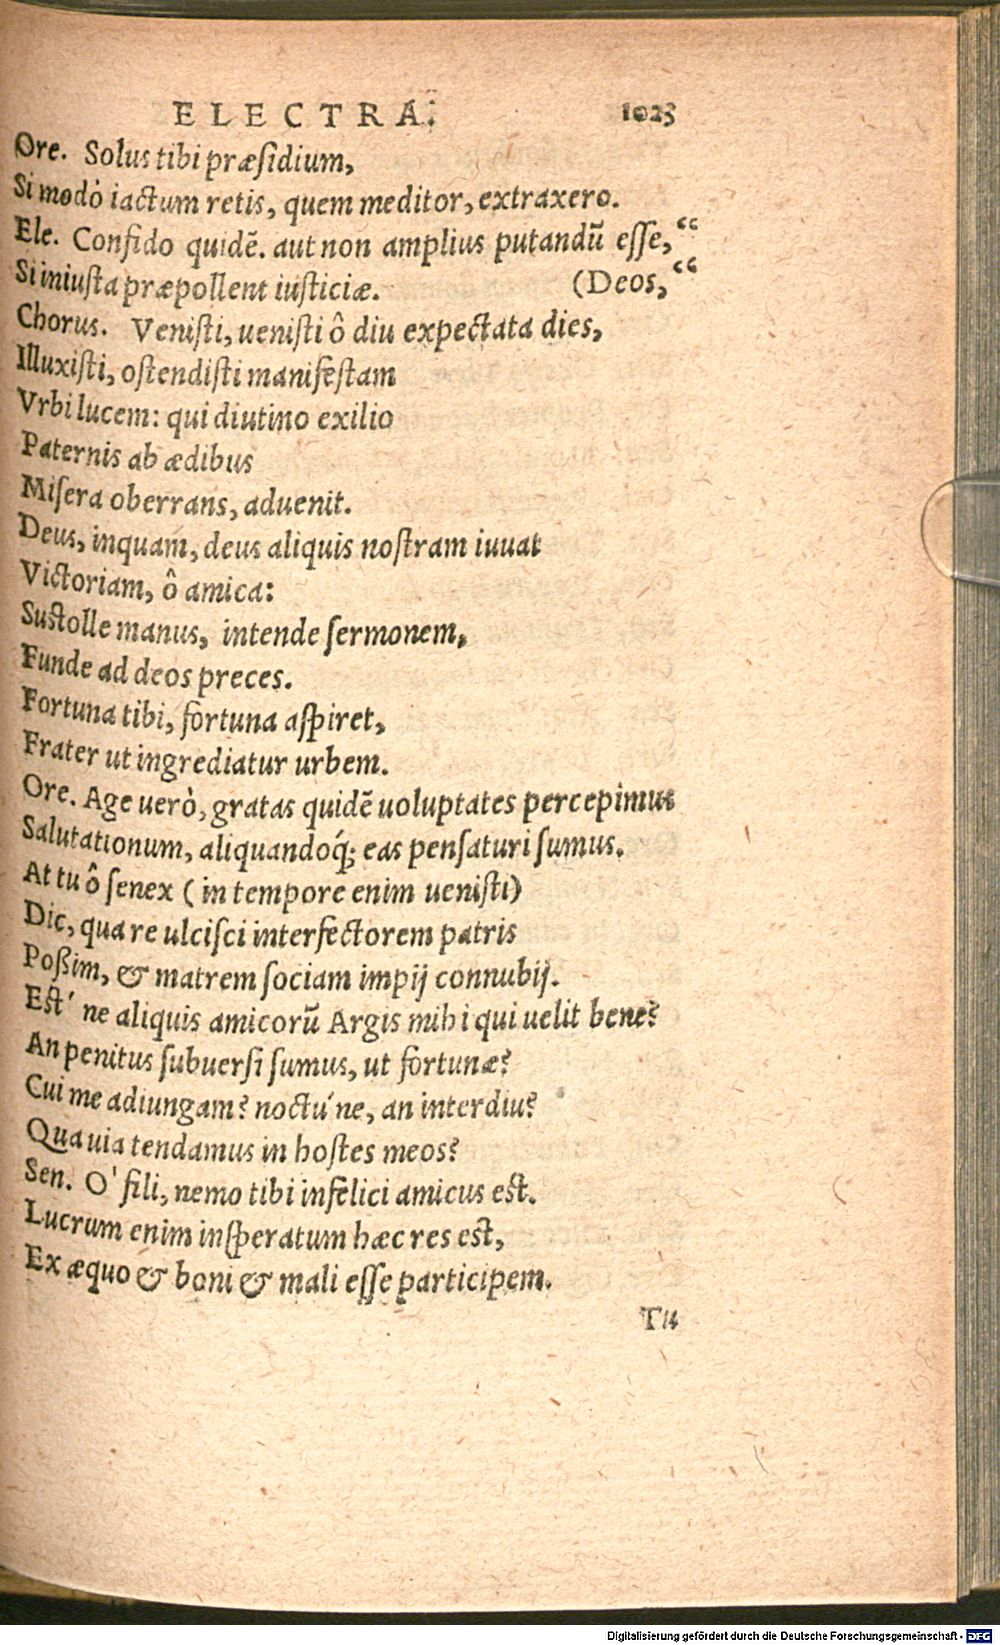 ELECTRA. 1023
Ore. Solus tibi præsidium,
Si modò iactum retis, quem meditor, extraxero.
Ele. Confido quidē. aut non amplius putandū esse, “
Si iniusta præpollent iusticiæ. (Deos, “
Chorus. Venisti, uenisti ô diu expectata dies,
Illuxisti, ostendisti manifestam
Vrbi lucem: qui diutino exilio
Paternis ab ædibus
Misera oberrans, aduenit.
Deus, inquam, deus aliquis nostram iuuat
Victoriam, ô amica:
Sustolle manus, intende sermonem,
Funde ad deos preces.
Fortuna tibi, fortuna aspiret,
Frater ut ingrediatur urbem.
Ore. Age uerò, gratas quidē uoluptates percepimus
Salutationum, aliquandoq́; eas pensaturi sumus.
At tu ô senex ( in tempore enim uenisti)
Dic, qua re ulcisci interfectorem patris
Poßim, & matrem sociam impij connubij.
Est' ne aliquis amicorū Argis mihi qui uelit bene?
An penitus subuersi sumus, ut fortunæ?
Cui me adiungam? noctu'ne, an interdiu?
Qua uia tendamus in hostes meos?
Sen. O' fili, nemo tibi infelici amicus est.
Lucrum enim insperatum hæc res est,
Ex æquo & boni & mali esse participem.
Tu
Digitalisierung gefördert durch die Deutsche Forschungsgemeinschaft - DFG